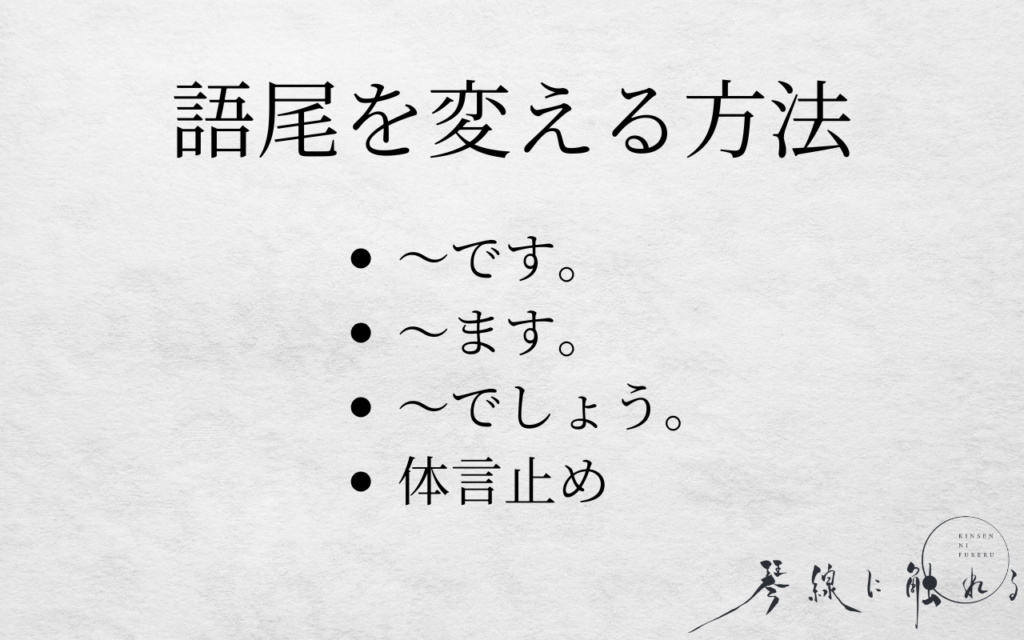 語尾を変える方法
• 〜です。
• 〜ます。
• 〜でしょう。
• 体言止め
KINSEN
NI
FURERU
琴線に触れる